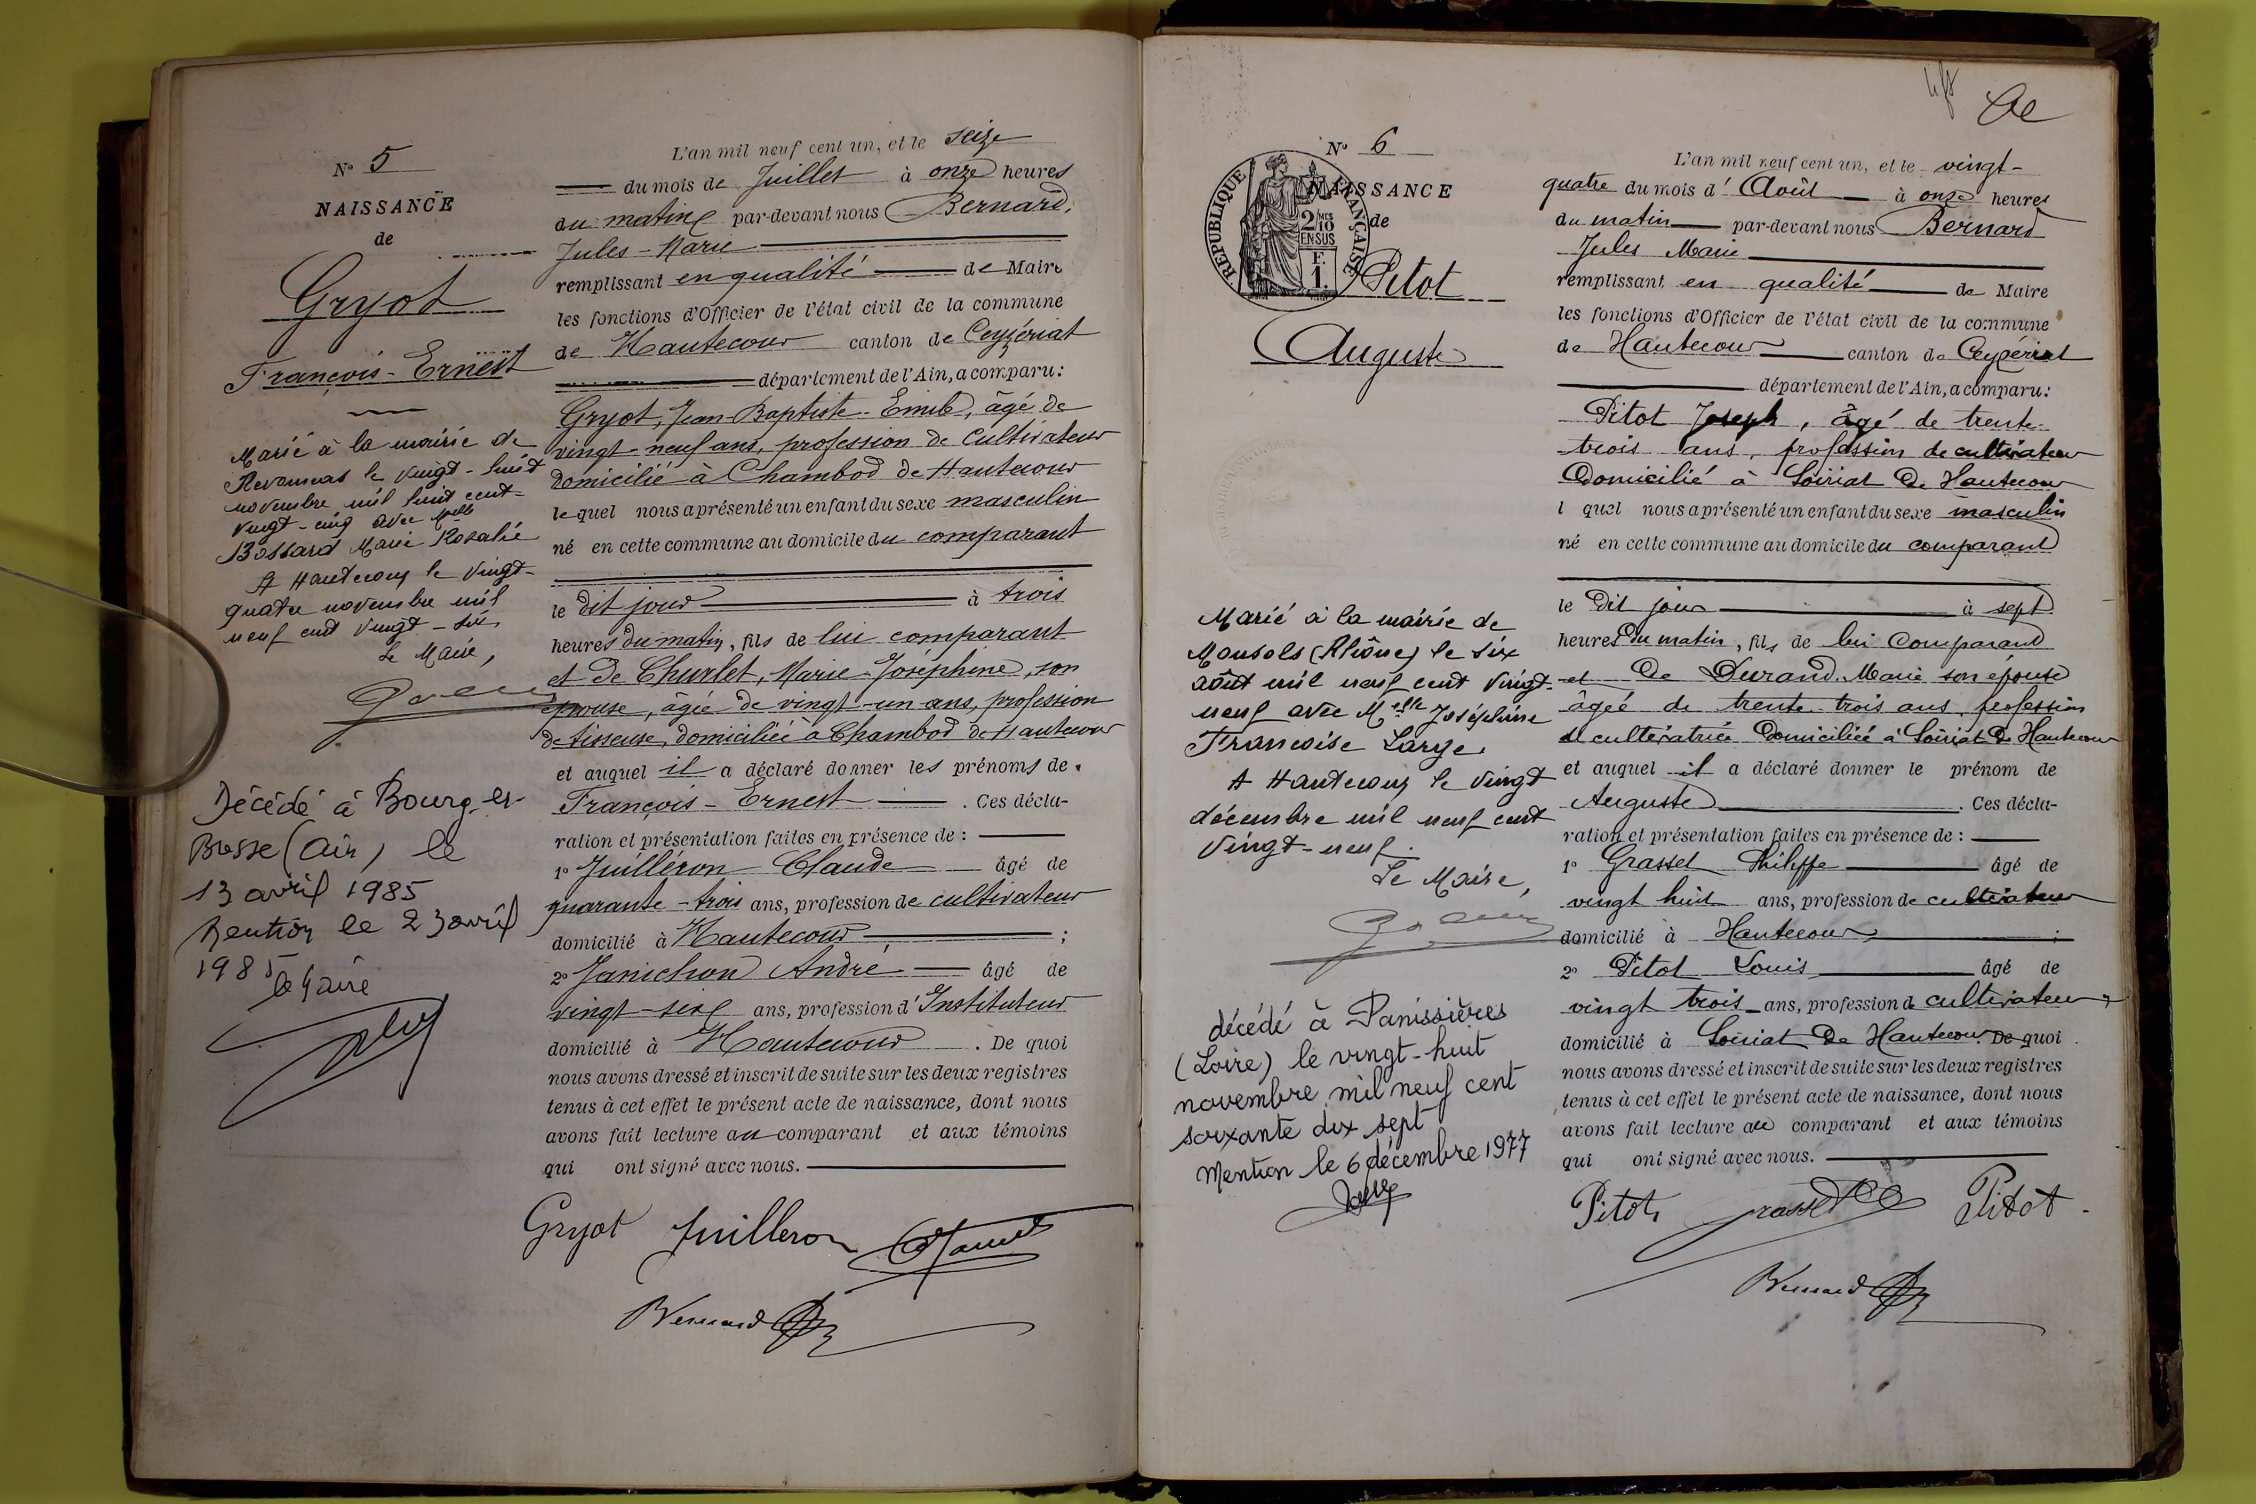 N° 5
NAISSANCE
de
Gryot
François-Ernest
Marié à la mairie de
Revonnas le vingt-huit
novembre mil huit cent-
vingt-cinq avec Melle
Bossard Marie Rosalie
A Hautecour le vingt-
quatre novembre mil
neuf cent vingt-six
Le Maire,
Décédé à Bourg-en-
Bresse (Ain) le
13 avril 1985
Mention le 23 avril
1985
le Maire
L'an mil neuf cent un, et le seize
du mois de Juillet à onze heures
du matin par-devant nous Bernard,
Jules-Marie
remplissant en qualité de Maire
les fonctions d'Officier de l'état civil de la commune
de Hautecour canton de Ceyzériat
département de l'Ain, a comparu:
Gryot, Jean-Baptiste-Emile, âgé de
vingt-neuf ans, profession de cultivateur
domicilié à Chambod de Hautecour
lequel nous a présenté un enfant du sexe masculin
né en cette commune au domicile du comparant
le dit jour à trois
heures du matin, fils de lui comparant
et de Churlet, Marie-Joséphine, son
épouse, âgée de vingt-un ans, profession
de tisseuse, domiciliée à Chambod de Hautecour
et auquel il a déclaré donner les prénoms de
François-Ernest . Ces décla-
ration et présentation faites en présence de :
1° Juilléron Claude âgé de
quarante-trois ans, profession de cultivateur
domicilié à Hautecour ;
2° Janichon André âgé de
vingt-six ans, profession d'Instituteur
domicilié à Hautecour . De quoi
nous avons dressé et inscrit de suite sur les deux registres
tenus à cet effet le présent acte de naissance, dont nous
avons fait lecture au comparant et aux témoins
qui ont signé avec nous.
Gryot Juilleron
Bernard
N° 6
NAISSANCE
de
RÉPUBLIQUE FRANÇAISE
2/10 MES
EN SUS
F.
1.
Pitot
Auguste
Marié à la mairie de
Monsols (Rhône) le six
août mil neuf cent vingt-
neuf avec Melle Joséphine
Francoise Large.
A Hautecour le vingt
décembre mil neuf cent
vingt-neuf.
Le Maire,
décédé à Panissières
(Loire) le vingt-huit
novembre mil neuf cent
soixante dix sept
Mention le 6 décembre 1977
L'an mil neuf cent un, et le vingt-
quatre du mois d'Août à onze heures
du matin par-devant nous Bernard
Jules Marie
remplissant en qualité de Maire
les fonctions d'Officier de l'état civil de la commune
de Hautecour canton de Ceyzériat
département de l'Ain, a comparu:
Pitot Joseph, âgé de trente-
trois ans, profession de cultivateur
Domicilié à Soiriat de Hautecour
l quel nous a présenté un enfant du sexe masculin
né en cette commune au domicile du comparant
le dit jour à sept
heures du matin, fils de lui comparant
et de Durand Marie son épouse
âgée de trente trois ans profession
de cultivatrice Domiciliée à Soiriat de Hautecour
et auquel il a déclaré donner le prénom de
Auguste . Ces décla-
ration et présentation faites en présence de :
1° Grasset Philippe âgé de
vingt huit ans, profession de cultivateur
domicilié à Hautecour ;
2° Pitot Louis âgé de
vingt trois ans, profession de cultivateur
domicilié à Soiriat de Hautecour De quoi
nous avons dressé et inscrit de suite sur les deux registres
tenus à cet effet le présent acte de naissance, dont nous
avons fait lecture au comparant et aux témoins
qui ont signé avec nous.
Pitot Grasset Pitot
Bernard